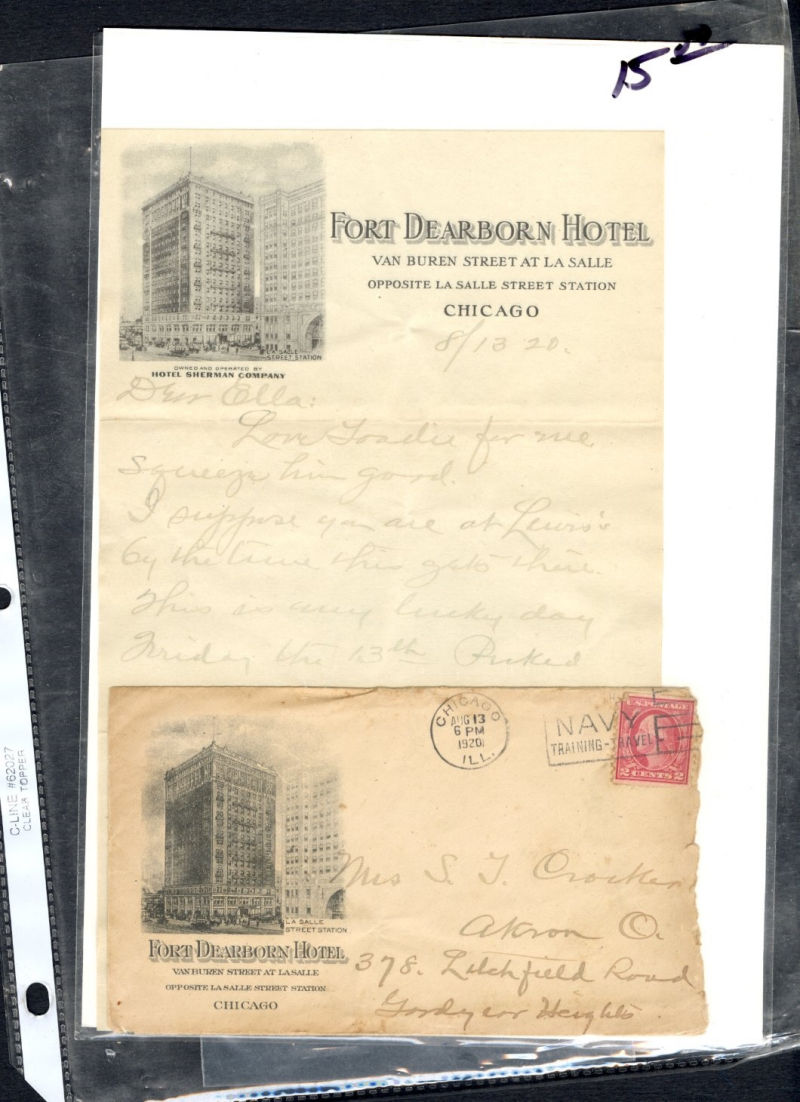 15.00
FORT DEARBORN HOTEL
VAN BUREN STREET AT LA SALLE
OPPOSITE LA SALLE STREET STATION
CHICAGO
LA SALLE
STREET STATION
OWNED AND OPERATED BY
HOTEL SHERMAN COMPANY
8/13 20.
Dear Ella:
Love Toadie for me
Squeeze him good.
I suppose you are at Lewis's
by the time this gets there.
This is my lucky day
Friday the 13th Picked
CHICAGO
AUG 13
6 PM
1920
ILL.
NAVY
TRAINING-TRAVEL
U.S. POSTAGE
2 CENTS 2
LA SALLE
STREET STATION
FORT DEARBORN HOTEL
VAN BUREN STREET AT LA SALLE
OPPOSITE LA SALLE STREET STATION
CHICAGO
Mrs S. T. Crocker
Akron O.
378. Litchfield Road
Goodyear Heights
C-LINE #62027
CLEAR TOPPER